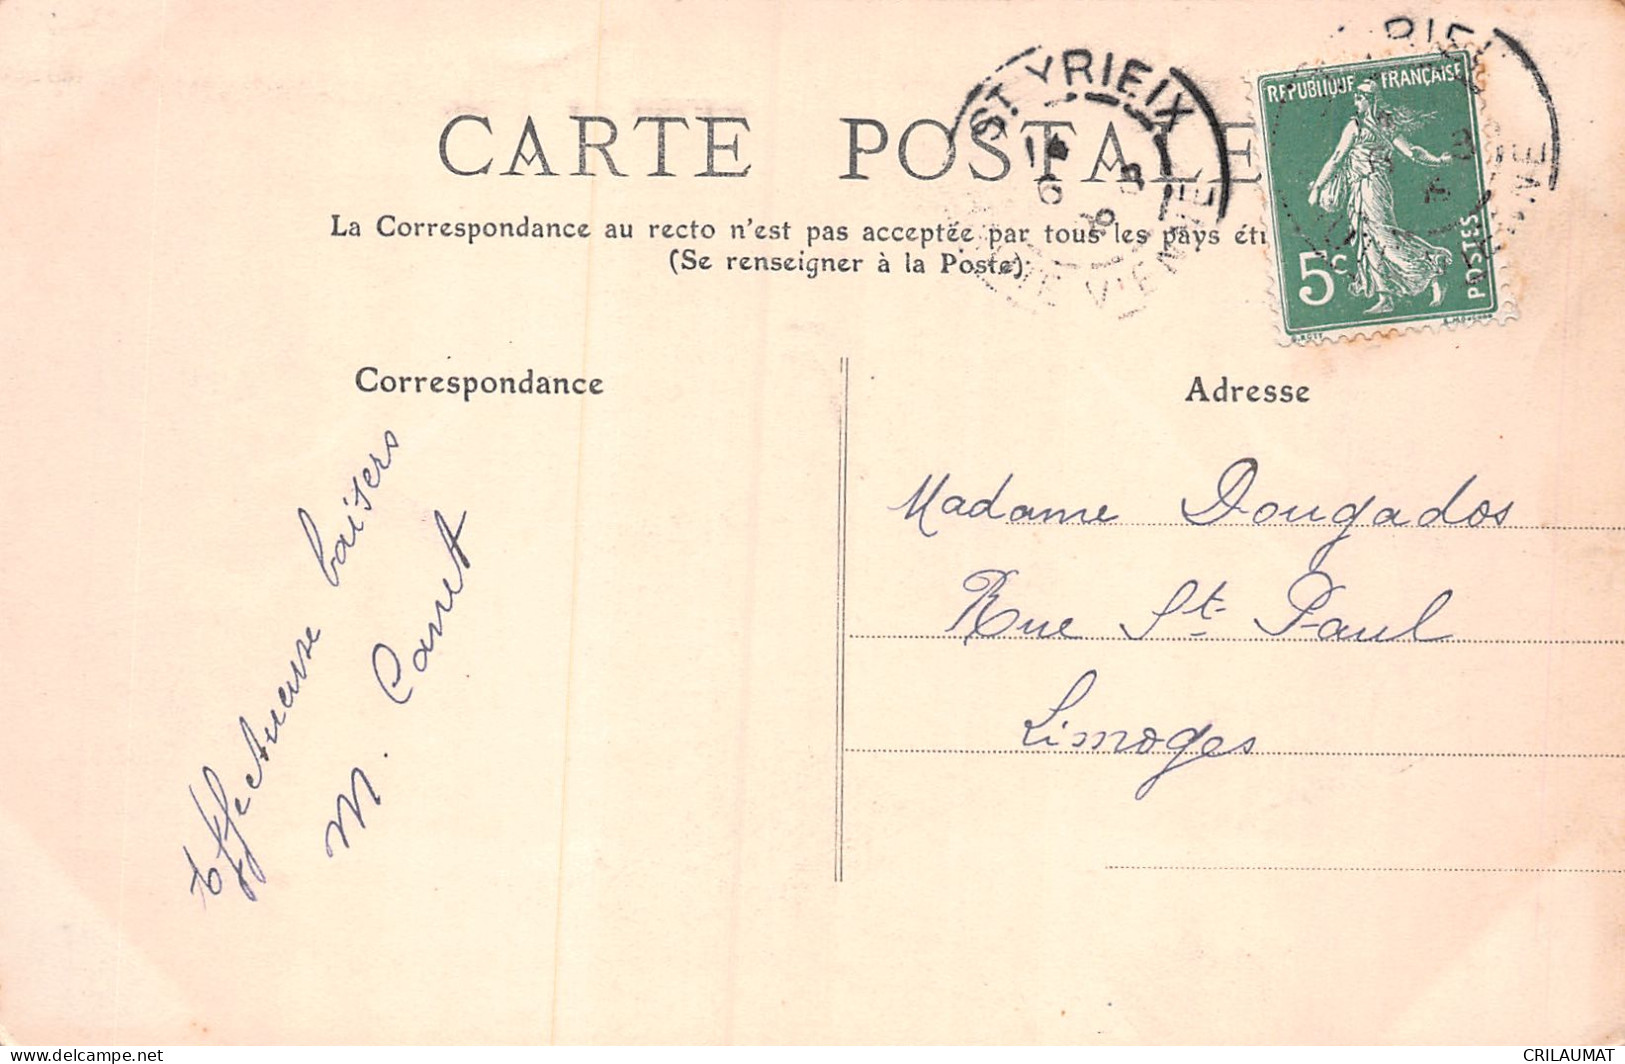 CARTE POSTALE
La Correspondance au recto n'est pas acceptée par tous les pays étr
(Se renseigner à la Poste)
ST YRIEIX
HTE VIENNE
REPUBLIQUE FRANÇAISE
5c
POSTES
Correspondance
Adresse
Affectueuse baisers
M. Canet
Madame Dougados
Rue St- Paul
Limoges
delcampe.net
CRILAUMAT